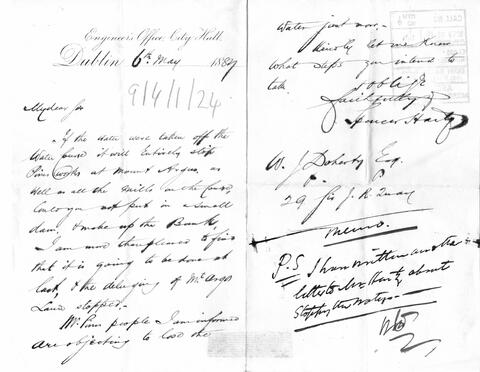 Engineers Office, City Hall,
Dublin 6th May 1889
9/4/1/24
My dear Sir
If the water were taken off the
Water course it will Entirely stop
works at Mount Argus, as
well as all the mills on the course
not put in a small
dam & make up the Bank,
I am more than pleased to find
that it is going to be done at
last, & the deluging of Mt Argus
Lane stopped.
people I am informed
are objecting to lose the
Water just now.
Kindly let me know
what steps you intend to
take
& oblige
faithfully
Spencer Harty
W. J. Doherty Esq.
29 Sir J. R. Quay
Memo.
P.S I have written another
letter to Mr Harty about
Stopping the water